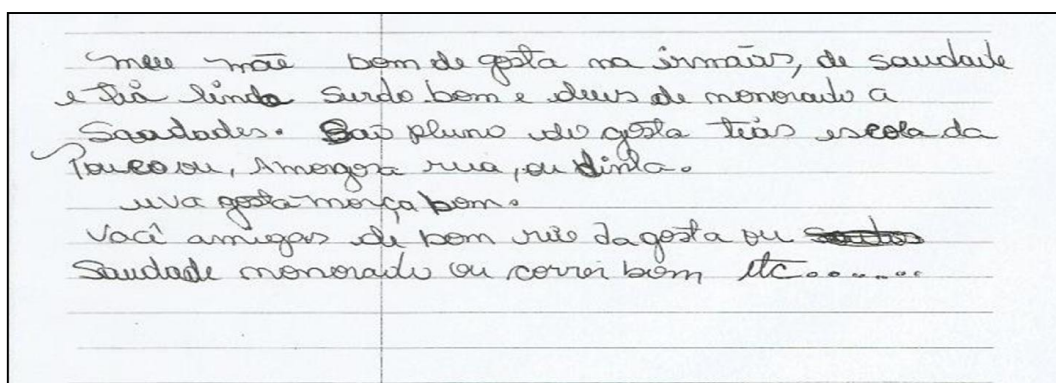 meu mãe bom de gosta na irmãos, de saudade
e tia linda surdo bom e deus de monorado a
Saudades. São pluno de gosta tias escola da
Pouco ou, Amorgosa rua, ou dinla.
uva gosta morça bom.
Você amigos de bom rio da gosta ou
Saudade monorado ou correi bom etc.......